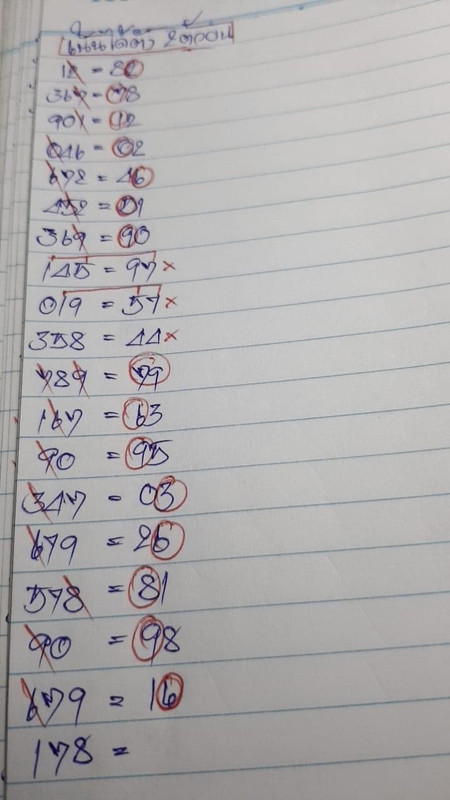 12 = 82
367 = 78
901 = 12
046 = 02
678 = 46
452 = 51
369 = 90
145 = 97 ×
019 = 57 ×
358 = 44 ×
789 = 79
167 = 63
90 = 95
347 = 03
679 = 26
578 = 81
90 = 98
679 = 16
178 =